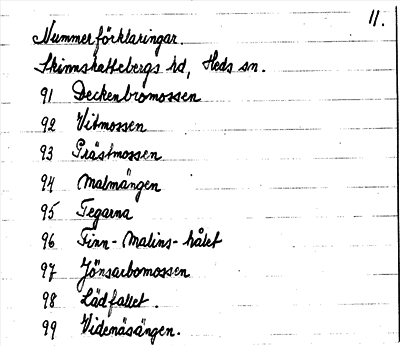 11.
Nummerförklaringar.
Skinnskattebergs hd, Heds sn.
91 Deckenbromossen
92 Vitmossen
93 Prästmossen
94 Malmängen
95 Tegarna
96 Finn-Malins-hålet
97 Jönsarbomossen
98 Lädfallet.
99 Videnäsängen.